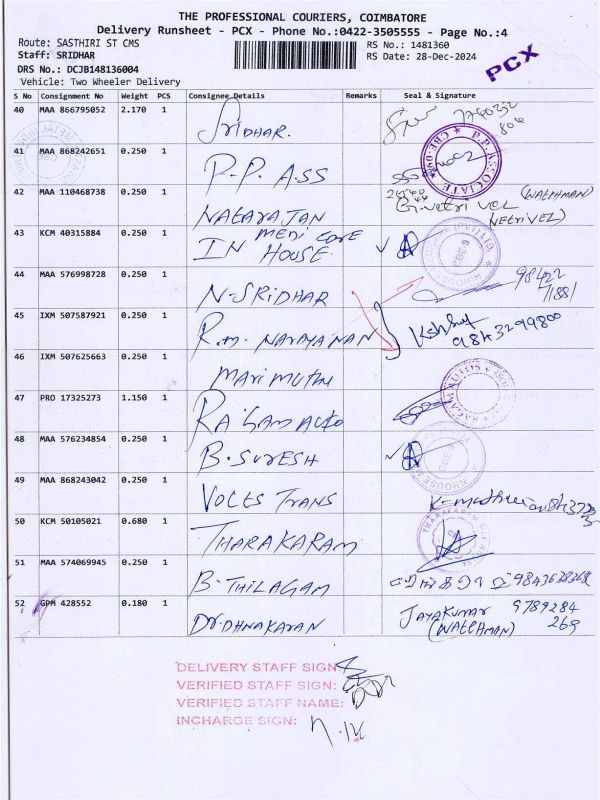 THE PROFESSIONAL COURIERS, COIMBATORE
Delivery Runsheet - PCX - Phone No.:0422-3505555 - Page No.:4
Route: SASTHIRI ST CMS
RS No.: 1481360
Staff: SRIDHAR
RS Date: 28-Dec-2024
DRS No.: DCJB148136004
Vehicle: Two Wheeler Delivery
PCX
S No Consignment No Weight PCS Consignee Details Remarks Seal & Signature
40 MAA 866795052 2.170 1 SRIDHAR.
41 MAA 868242651 0.250 1 P.P. ASS
P.P.ASSOCIATE
42 MAA 110468738 0.250 1 NATARAJAN G.Vetri VEL (WATCHMAN)
(VETRIVEL)
43 KCM 40315884 0.250 1 IN MEDI CARE
HOUSE.
44 MAA 576998728 0.250 1 N-SRIDHAR 98422
71881
45 IXM 507587921 0.250 1 R.M. NARAYANAN 9843299800
46 IXM 507625663 0.250 1 MARIMUTHU
47 PRO 17325273 1.150 1 RAJGAM AUTO
48 MAA 576234854 0.250 1 B.SURESH
49 MAA 868243042 0.250 1 VOLTS TRANS
50 KCM 50105021 0.680 1 THARAKARAM
THARAKARAM
51 MAA 574069945 0.250 1 B.THILAGAM
52 GPM 428552 0.180 1 DR.DHNAKARAN JAYAKUMAR 9789284
(WATCHMAN) 269
DELIVERY STAFF SIGN:
VERIFIED STAFF SIGN:
VERIFIED STAFF NAME:
INCHARGE SIGN: